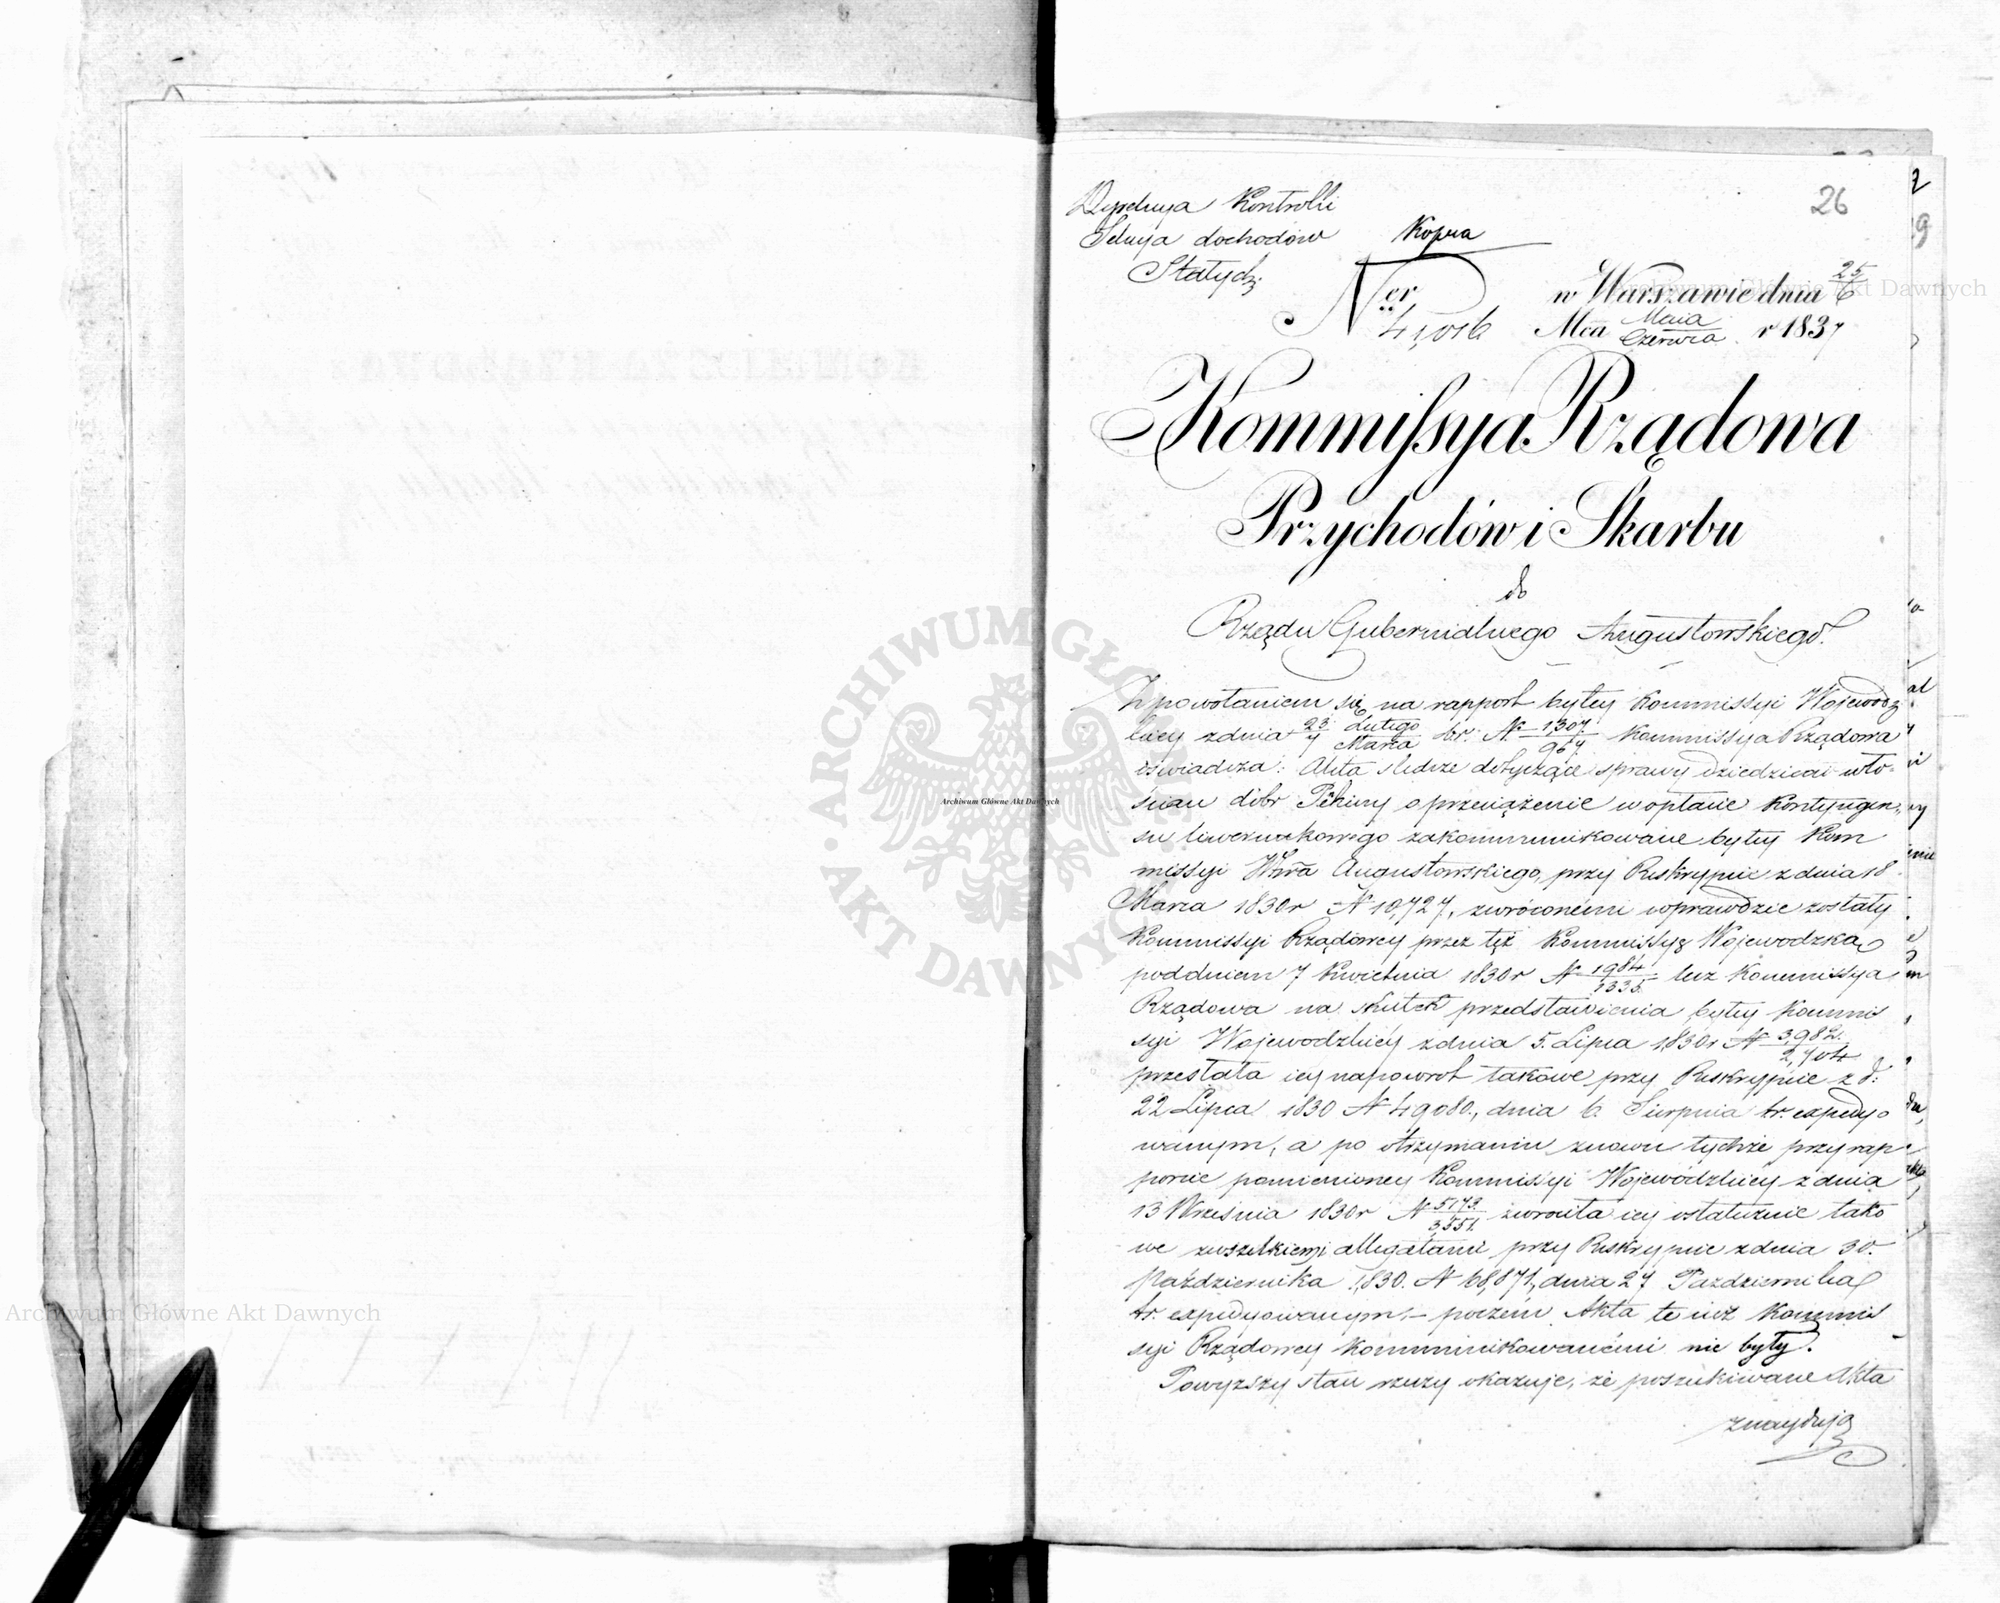 26
Dyrekcya Kontrolli
Sekcya dochodów
Stałych.
Kopia
Ner 41,016
w Warszawie dnia 25/6
Mca Maia/Czerwca r 1837
Kommissya Rządowa
Przychodów i Skarbu
do
Rządu Gubernialnego Augustowskiego.
Z powołaniem się na rapport byłey Kommissyi Wojewodz
kiey z dnia 23/7 Lutego/Marca br: N. 1307/967. Kommissya Rządowa
oświadcza: Akta śledcze dotyczące sprawy dziedzica i wło-
ścian dóbr o przeciążenie w opłacie Kontyngen-
su liwerunkowego zakommunikowane byłey Kom
missyi Wwa Augustowskiego, przy Reskrypcie z dnia 18
Marca 1830r N 10,727, zwróconemi wprawdzie zostały
Kommissyi Rządowey przez tęż Kommissyę Wojewodzką
pod dniem 7 Kwietnia 1830r N 1984/1335. lecz Kommissya
Rządowa na skutek przedstawienia byłey Kommis
syi Wojewodzkiey z dnia 5. Lipca 1830r N 3,982./2,704
przesłała iey napowrót takowe przy Reskrypcie z d:
22 Lipca 1830 N 49080., dnia 6. Sierpnia tr. expedyo
wanym, a po otrzymaniu znowu tychże przy rap-
porcie pomienioney Kommissyi Wojewódzkiey z dnia
13 Września 1830r N 5173./3551. zwróciła iey ostatecznie tako
we z wszelkiemi allegatami przy Reskrypcie z dnia 30.
Października 1830. N 68,871, dnia 27 Października
tr. expedyowanym, – poczem Akta te iuż Kommis
syi Rządowey kommunikowanemi nie były.
Powyższy stan rzeczy okazuje, że poszukiwane Akta
znayduią
ARCHIWUM GŁÓWNE AKT DAWNYCH
Archiwum Główne Akt Dawnych
Archiwum Główne Akt Dawnych
Archiwum Główne Akt Dawnych